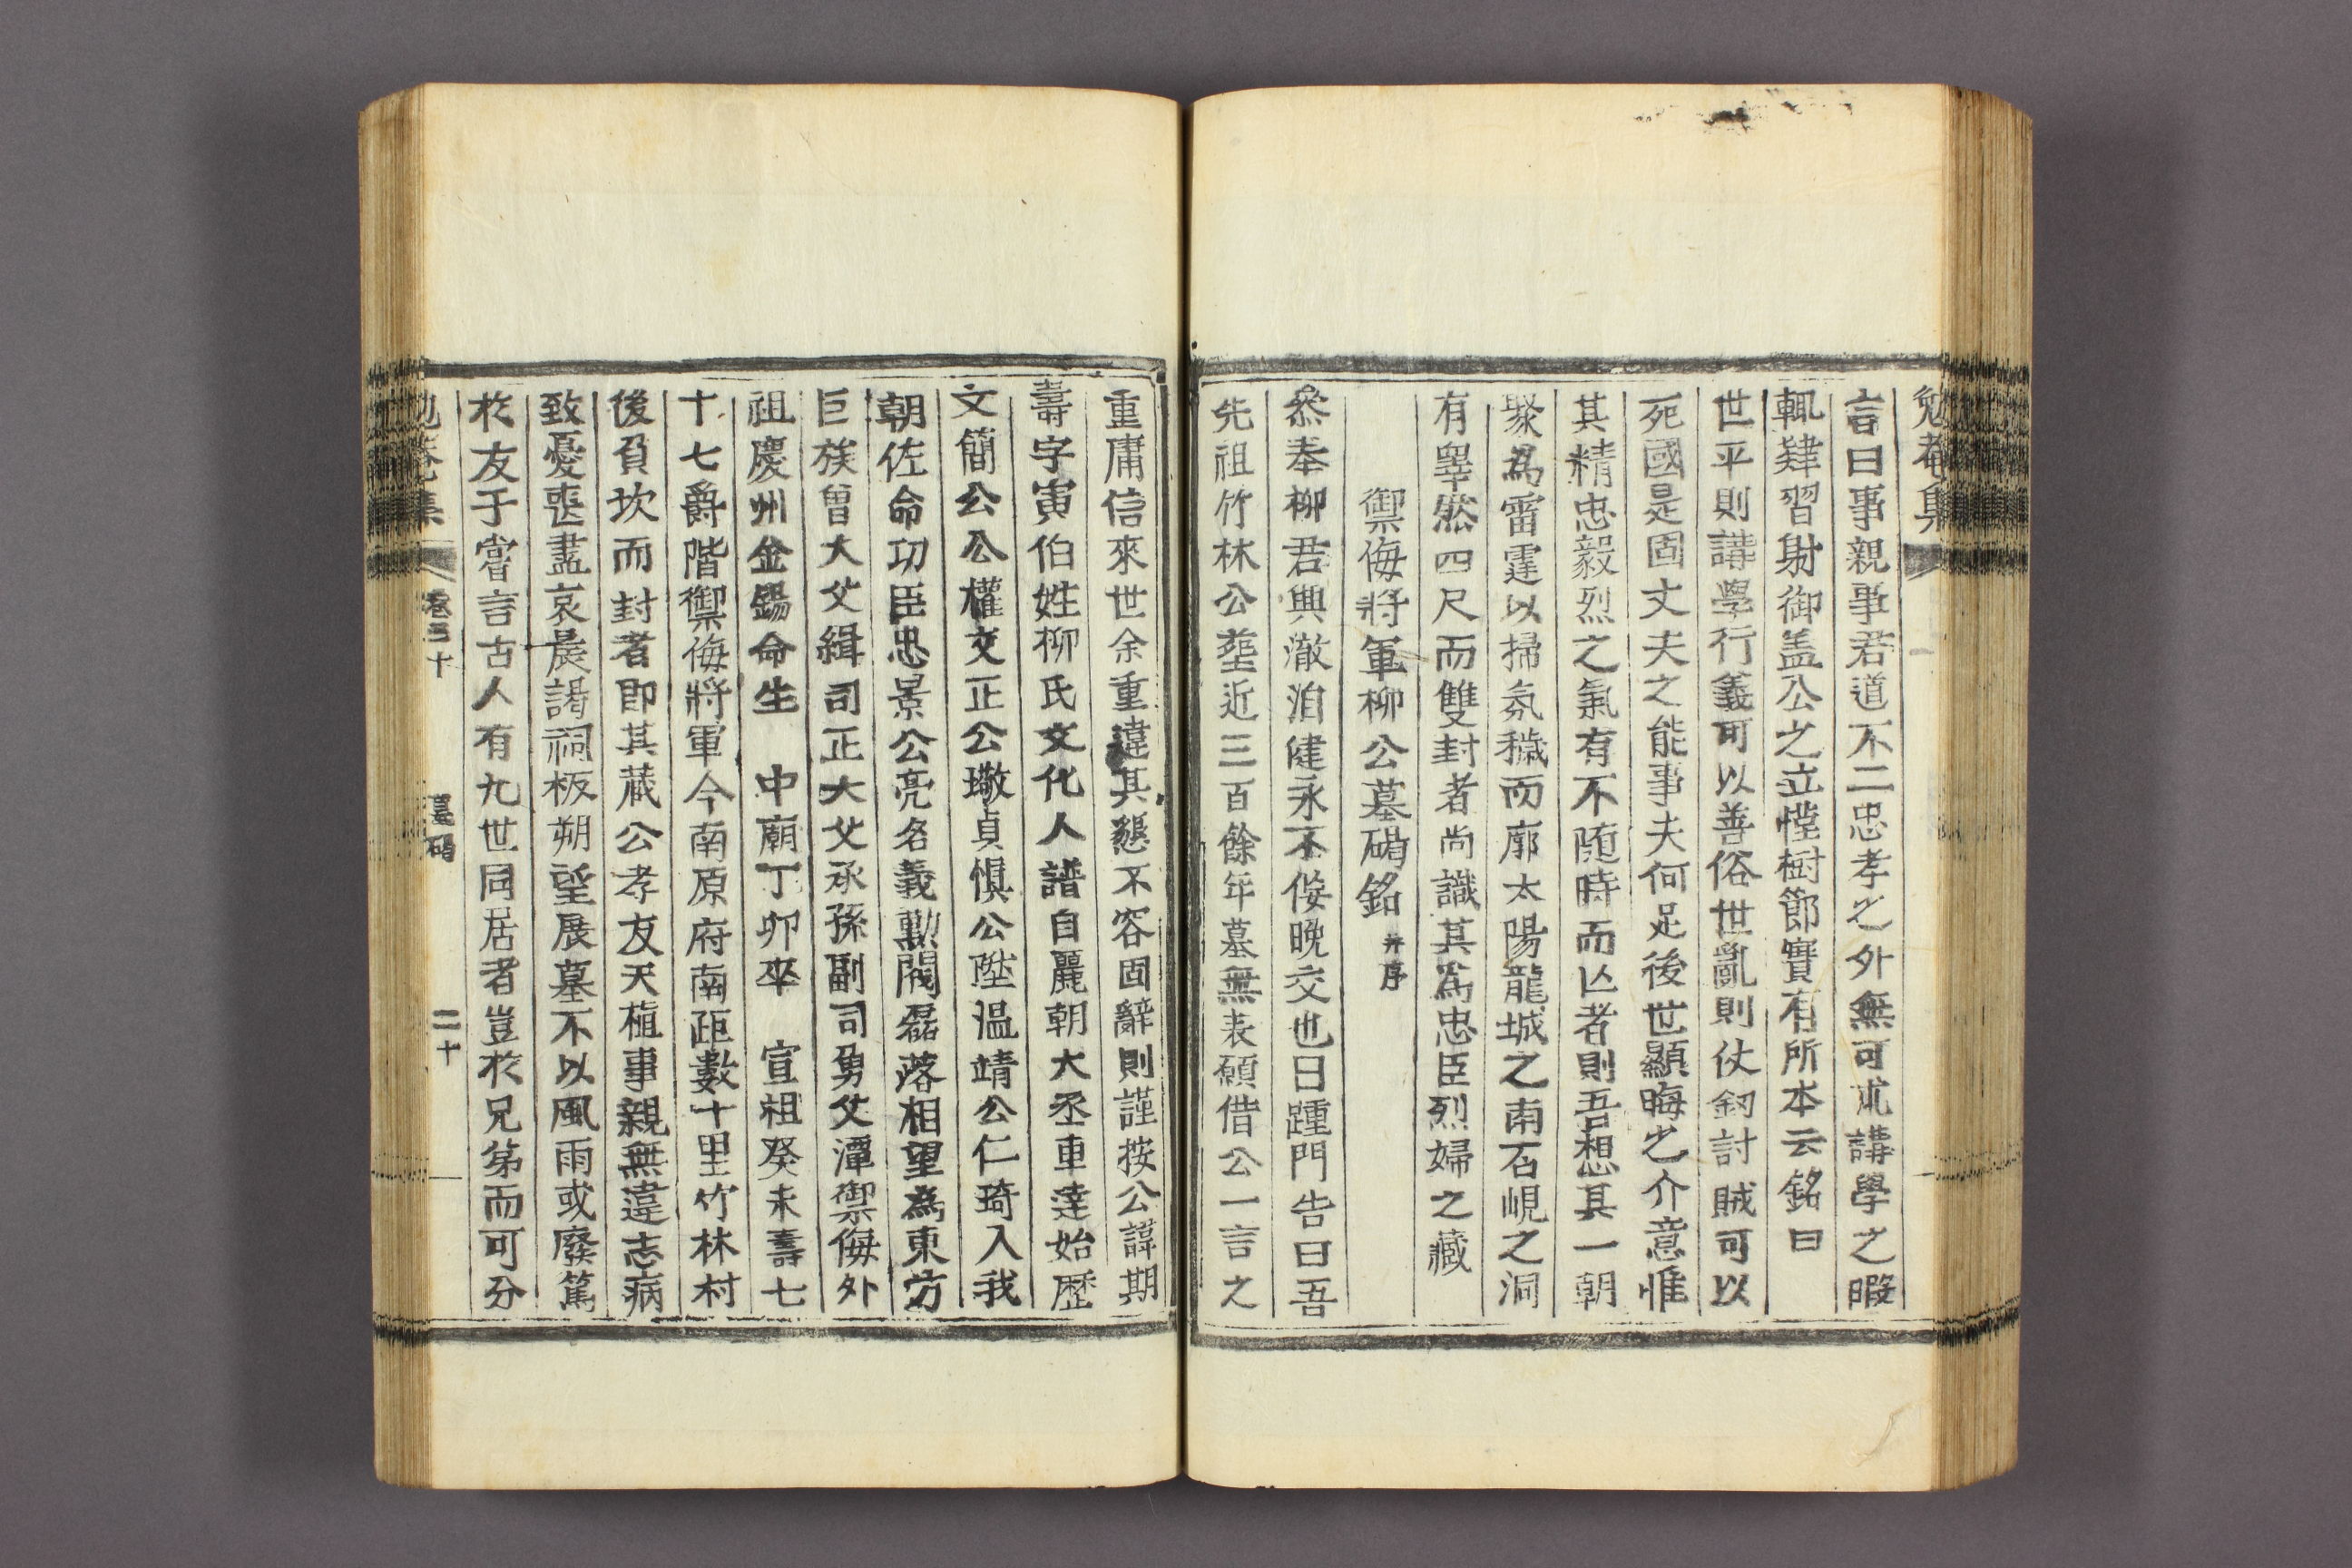 勉菴集
言曰事親事君道不二忠孝之外無可求講學之暇
輒肄習射御盖公之立慷樹節實有所本云銘曰
世平則講學行義可以善俗世亂則仗釼討賊可以
死國是固丈夫之能事夫何足後世顯晦之介意惟
其精忠毅烈之氣有不随時而亾者則吾想其一朝
聚爲雷霆以掃氛穢而廓太陽龍城之南石峴之洞
有睾然四尺而雙封者尚識其爲忠臣烈婦之藏
禦侮將軍柳公墓碣銘 并序
叅奉柳君興澈洎健永不佞晩交也日踵門告曰吾
先祖竹林公塟近三百餘年墓無表願借公一言之
重庸信來世余重違其懇不容固辭則謹按公諱期
壽字寅伯姓柳氏文化人譜自麗朝大丞車達始歷
文簡公公權文正公璥貞愼公陞温靖公仁琦入我
朝佐命功臣忠景公亮名義勳閥磊落相望為東方
巨族曾大父緝司正大父承孫副司勇父潭禦侮外
祖慶州金錫命生 中廟丁卯卒 宣祖癸未壽七
十七爵階禦侮將軍今南原府南距數十里竹林村
後負坎而封者即其蔵公孝友天植事親無違志病
致憂喪盡哀晨謁祠板朔望展墓不以風雨或廢篤
於友于嘗言古人有九世同居者豈於兄苐而可分
勉菴集 卷三十 墓碣 二十